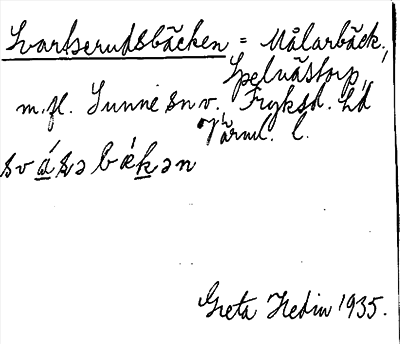 Svartserudsbäcken = Målarbäck.,
Spelnästorp,
m.fl. Sunne sn v. Fryksd. hd
Värml. l.
sváşə bækən
Greta Hedin 1935.